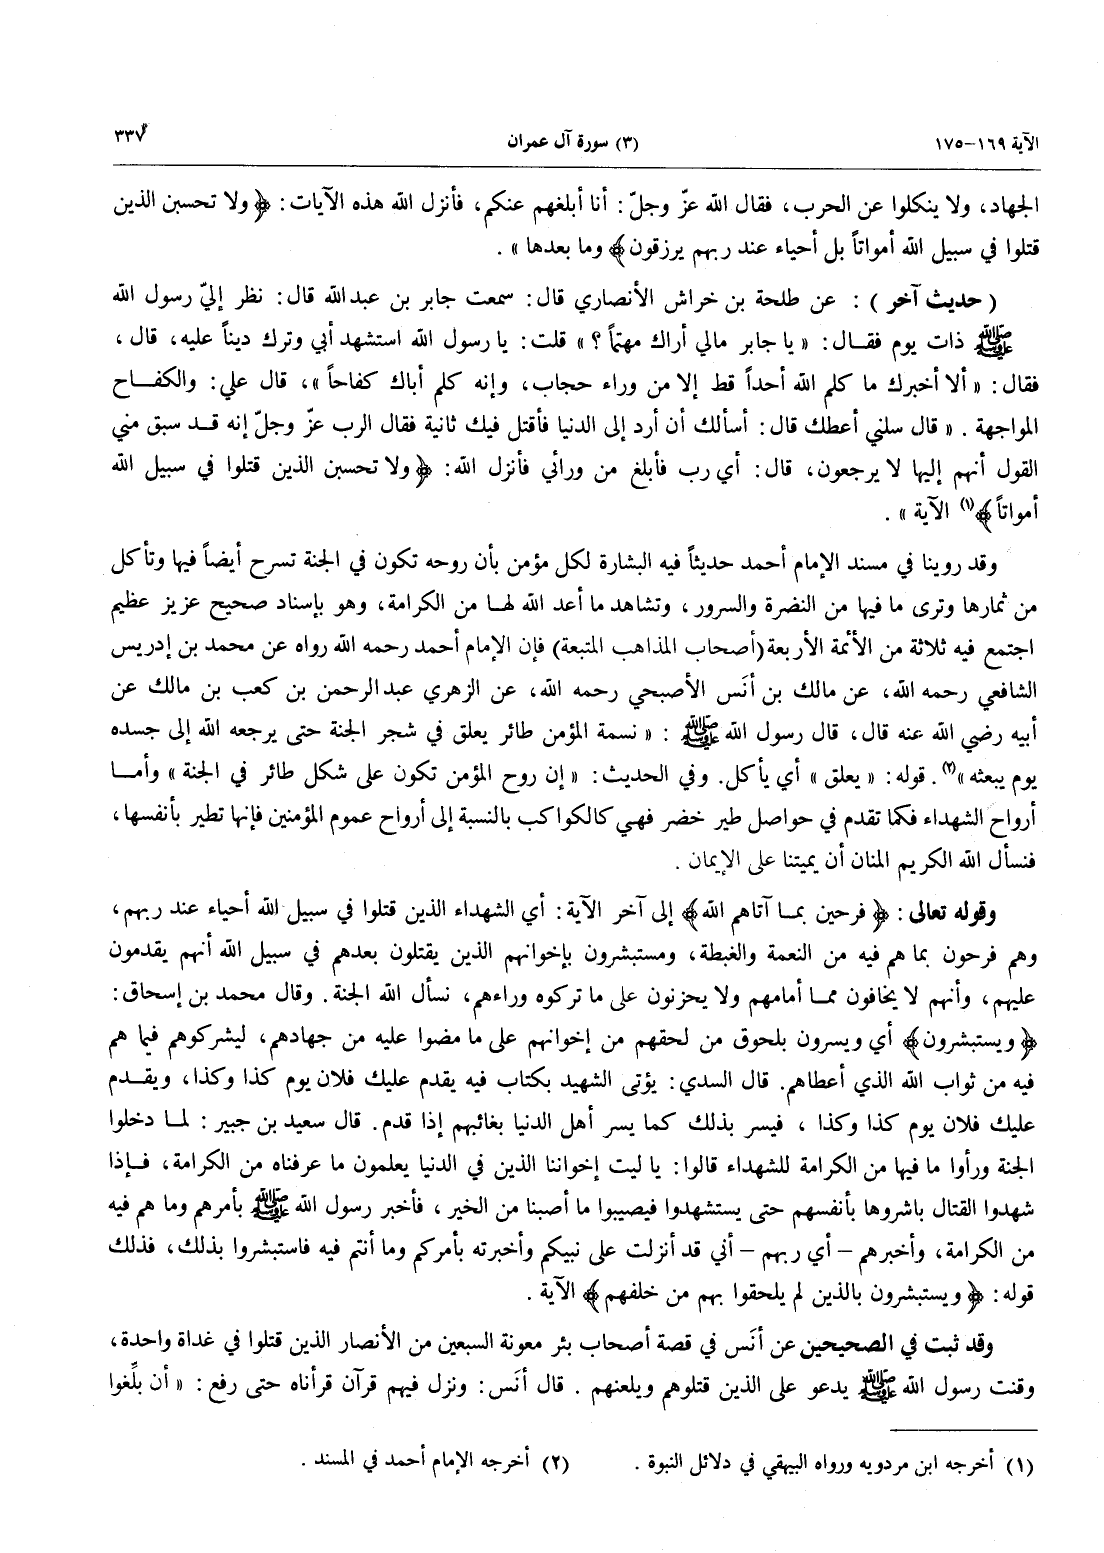 الآية ١٦٩-١٧٥ (٣) سورة آل عمران ٣٣٧
الجهاد، ولا ينكلوا عن الحرب، فقال الله عزّ وجلّ: أنا أبلغهم عنكم، فأنزل الله هذه الآيات: ﴿ ولا تحسبن الذين
قتلوا في سبيل الله أمواتاً بل أحياء عند ربهم يرزقون﴾ وما بعدها » .
( حديث آخر ) : عن طلحة بن خراش الأنصاري قال: سمعت جابر بن عبدالله قال: نظر إليّ رسول الله
ﷺ ذات يوم فقـال: « يا جابر مالي أراك مهتماً ؟ » قلت: يا رسول الله استشهد أبي وترك ديناً عليه، قال ،
فقال: « ألا أخبرك ما كلم الله أحداً قط إلا من وراء حجاب، وإنه كلم أباك كفاحاً »، قال علي: والكفـاح
المواجهة . « قال سلني أعطك قال: أسألك أن أرد إلى الدنيا فأقتل فيك ثانية فقال الرب عزّ وجلّ إنه قـد سبق مني
القول أنهم إليها لا يرجعون، قال: أي رب فأبلغ من ورائي فأنزل الله: ﴿ولا تحسبن الذين قتلوا في سبيل الله
أمواتاً﴾(١) الآية » .
وقد روينا في مسند الإمام أحمد حديثاً فيه البشارة لكل مؤمن بأن روحه تكون في الجنة تسرح أيضاً فيها وتأكل
من ثمارها وترى ما فيها من النضرة والسرور ، وتشاهد ما أعد الله لهـا من الكرامة، وهو بإسناد صحيح عزيز عظيم
اجتمع فيه ثلاثة من الأئمة الأربعة(أصحاب المذاهب المتبعة) فإن الإمام أحمد رحمه الله رواه عن محمد بن إدريس
الشافعي رحمه الله، عن مالك بن أنَس الأصبحي رحمه الله، عن الزهري عبدالرحمن بن كعب بن مالك عن
أبيه رضي الله عنه قال، قال رسول الله ﷺ : « نسمة المؤمن طائر يعلق في شجر الجنة حتى يرجعه الله إلى جسده
يوم يبعثه »(٢). قوله: « يعلق » أي يأكل. وفي الحديث: « إن روح المؤمن تكون على شكل طائر في الجنة » وأمـا
أرواح الشهداء فكما تقدم في حواصل طير خضر فهي كالكواكب بالنسبة إلى أرواح عموم المؤمنين فإنها تطير بأنفسها،
فنسأل الله الكريم المنان أن يميتنا على الإيمان .
وقوله تعالى: ﴿ فرحين بمـا آتاهم الله﴾ إلى آخر الآية: أي الشهداء الذين قتلوا في سبيل الله أحياء عند ربهم،
وهم فرحون بما هم فيه من النعمة والغبطة، ومستبشرون بإخوانهم الذين يقتلون بعدهم في سبيل الله أنهم يقدمون
عليهم، وأنهم لا يخافون ممـا أمامهم ولا يحزنون على ما تركوه وراءهم، نسأل الله الجنة. وقال محمد بن إسحاق:
﴿ويستبشرون﴾ أي ويسرون بلحوق من لحقهم من إخوانهم على ما مضوا عليه من جهادهم، ليشركوهم فيما هم
فيه من ثواب الله الذي أعطاهم. قال السدي: يؤتى الشهيد بكتاب فيه يقدم عليك فلان يوم كذا وكذا، ويقـدم
عليك فلان يوم كذا وكذا ، فيسر بذلك كما يسر أهل الدنيا بغائبهم إذا قدم. قال سعيد بن جبير : لمـا دخلوا
الجنة ورأوا ما فيها من الكرامة للشهداء قالوا: يا ليت إخواننا الذين في الدنيا يعلمون ما عرفناه من الكرامة، فـإذا
شهدوا القتال باشروها بأنفسهم حتى يستشهدوا فيصيبوا ما أصبنا من الخير ، فأخبر رسول الله ﷺ بأمرهم وما هم فيه
من الكرامة، وأخبرهم – أي ربهم – أني قد أنزلت على نبيكم وأخبرته بأمركم وما أنتم فيه فاستبشروا بذلك، فذلك
قوله: ﴿ ويستبشرون بالذين لم يلحقوا بهم من خلفهم﴾ الآية .
وقد ثبت في الصحيحين عن أنَس في قصة أصحاب بئر معونة السبعين من الأنصار الذين قتلوا في غداة واحدة،
وقنت رسول الله ﷺ يدعو على الذين قتلوهم ويلعنهم . قال أنَس: ونزل فيهم قرآن قرأناه حتى رفع: « أن بلِّغوا
(١) أخرجه ابن مردويه ورواه البيهقي في دلائل النبوة . (٢) أخرجه الإمام أحمد في المسند .